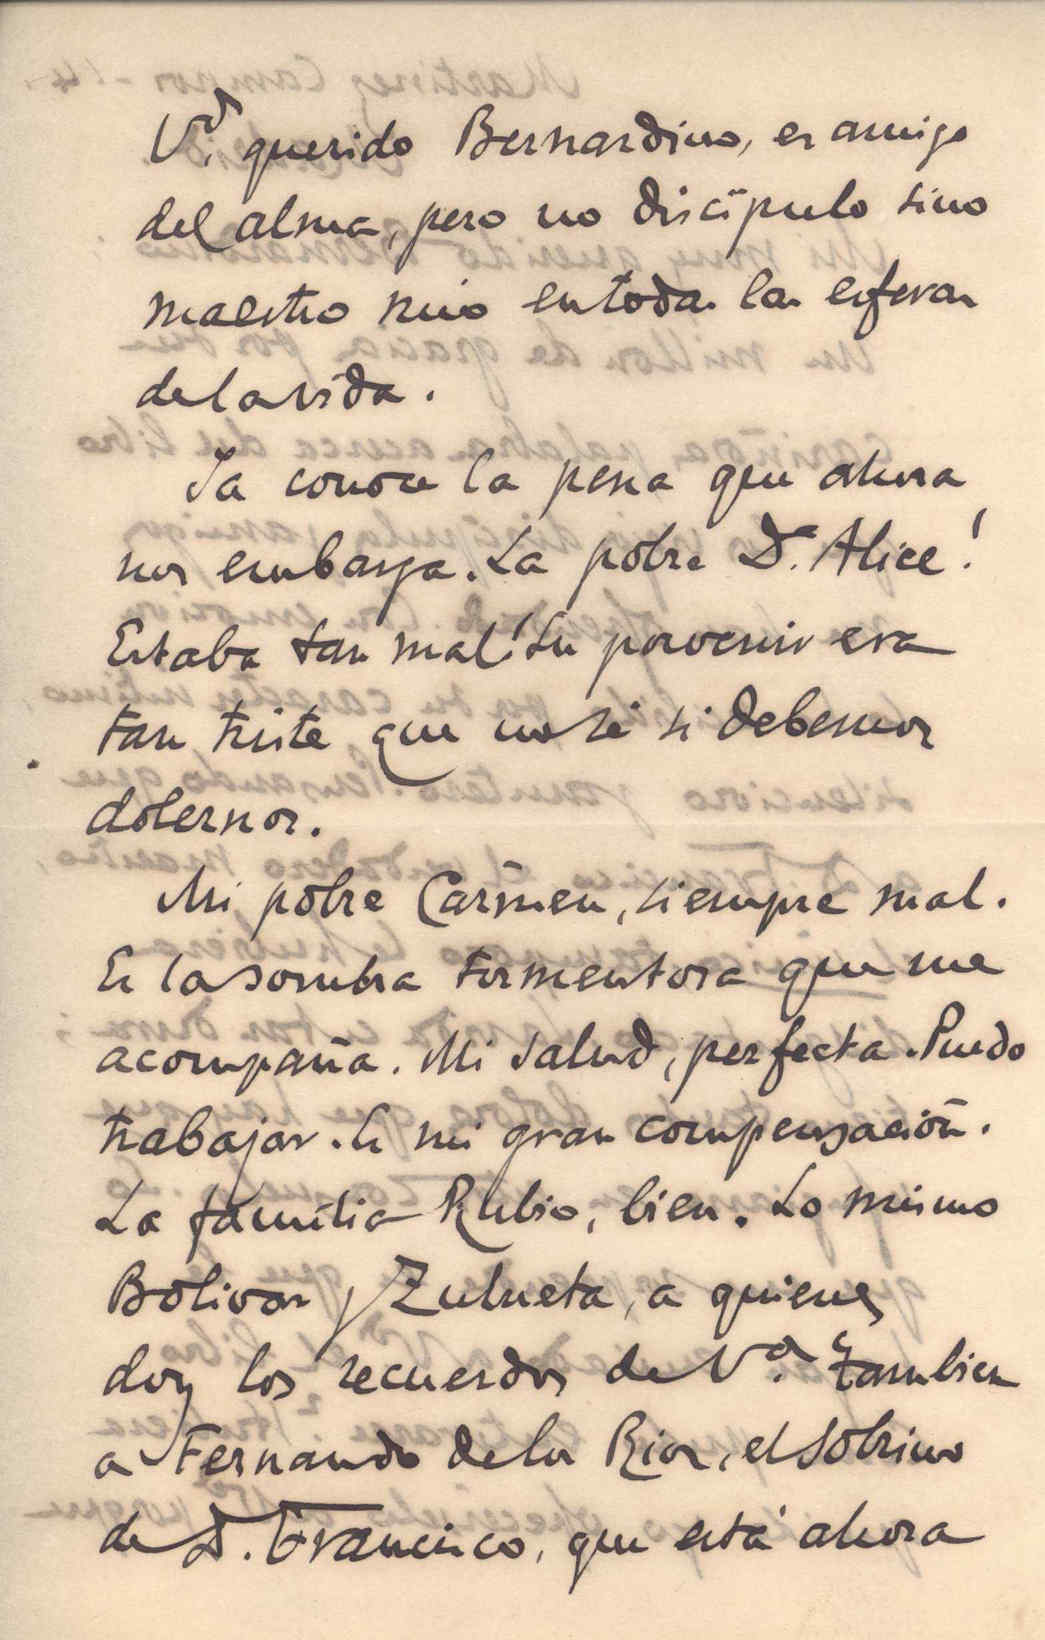 Vd. querido Bernardino, es amigo
del alma, pero no discípulo sino
maestro mio en todas las esferas
de la vida.
Ya conoce la pena que ahora
nos embarga. La pobre Da. Alice!
Estaba tan mal! Su porvenir era
tan triste que no sé si debemos
dolernos.
Mi pobre Carmen, siempre mal.
Es la sombra tormentosa que me
acompaña. Mi salud, perfecta. Puedo
trabajar. Es mi gran compensación.
La familia Rubio, bien. Lo mismo
Bolivar y Zulueta, a quienes
doy los recuerdos de Vd. Tambien
a Fernando de los Rios, el sobrino
de D. Francisco, que está ahora